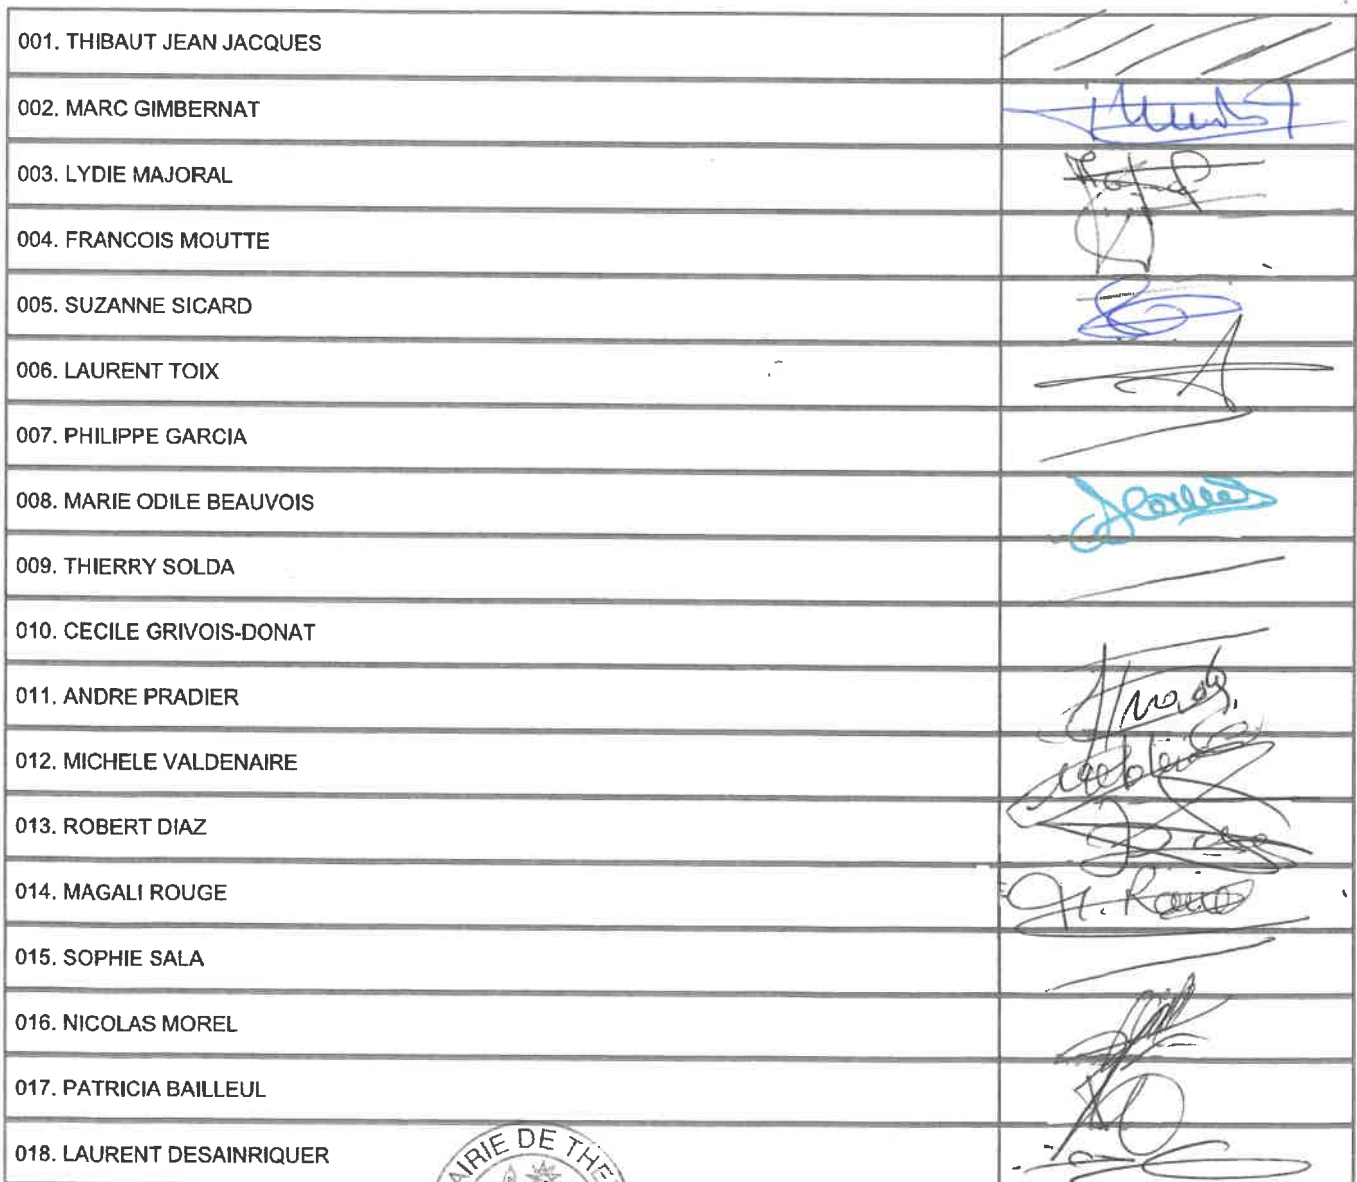 001. THIBAUT JEAN JACQUES
002. MARC GIMBERNAT
003. LYDIE MAJORAL
004. FRANCOIS MOUTTE
005. SUZANNE SICARD
006. LAURENT TOIX
007. PHILIPPE GARCIA
008. MARIE ODILE BEAUVOIS
009. THIERRY SOLDA
010. CECILE GRIVOIS-DONAT
011. ANDRE PRADIER
012. MICHELE VALDENAIRE
013. ROBERT DIAZ
014. MAGALI ROUGE
015. SOPHIE SALA
016. NICOLAS MOREL
017. PATRICIA BAILLEUL
018. LAURENT DESAINRIQUER
AIRIE DE THE